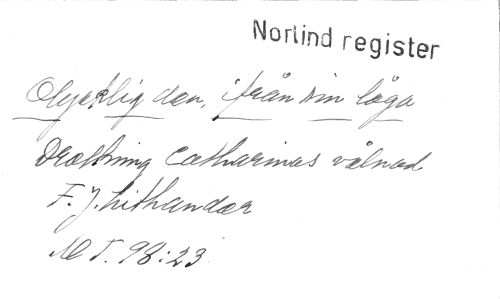 Norlind register
Olycklig den, ifrån sin låga
Drottning Catharinas vålnad
F. J. Lithander
N T. 98:23